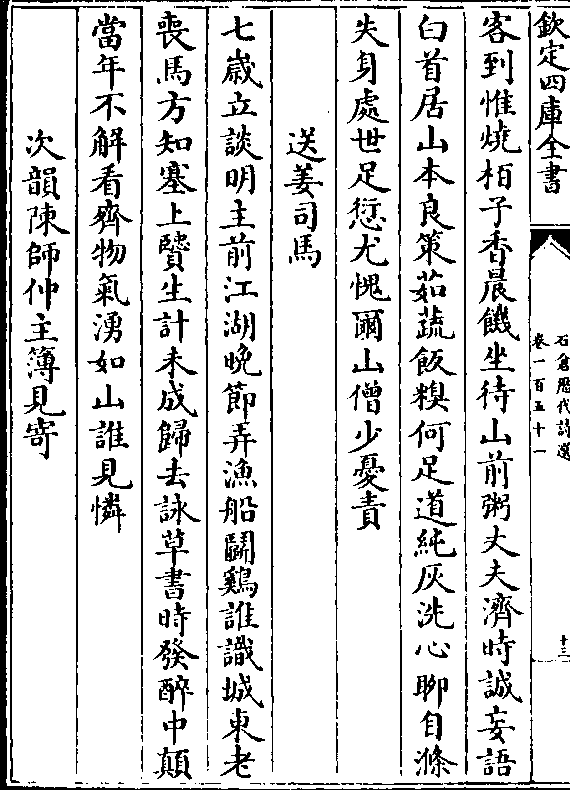 欽定四庫全書
石倉歷代詩選
卷一百五十一
十三
客到惟燒栢子香晨饑坐待山前粥丈夫濟時誠妄語
白首居山本良策茹蔬飯糗何足道純灰洗心聊自滌
失身處世足愆尤愧爾山僧少憂責
送姜司馬
七歲立談明主前江湖晚節弄漁船鬭鷄誰識城東老
喪馬方知塞上賢生計未成歸去詠草書時發醉中顛
當年不解看齊物氣湧如山誰見憐
次韻陳師仲主簿見寄